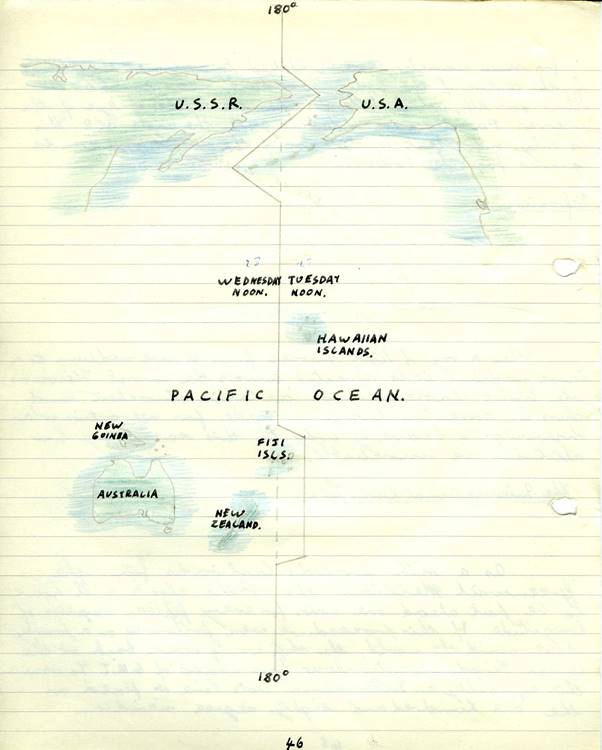 180°
U.S.S.R. U.S.A.
WEDNESDAY TUESDAY
NOON. NOON.
HAWAIIAN
ISLANDS.
PACIFIC OCEAN.
NEW
GUINEA
FIJI
ISLS.
AUSTRALIA
NEW
ZEALAND.
180°
46